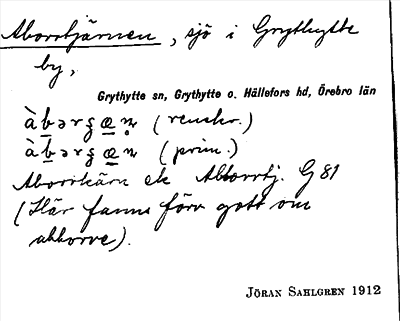 Aborrtjärnen, sjö i Grythytte
by,
Grythytte sn, Grythytte o. Hällefors hd, Örebro län
(renskr.)
(prim.)
Aborrkärn ek Abborrtj. G 81
(Här fanns förr gott om
abborre).
JÖRAN SAHLGREN 1912